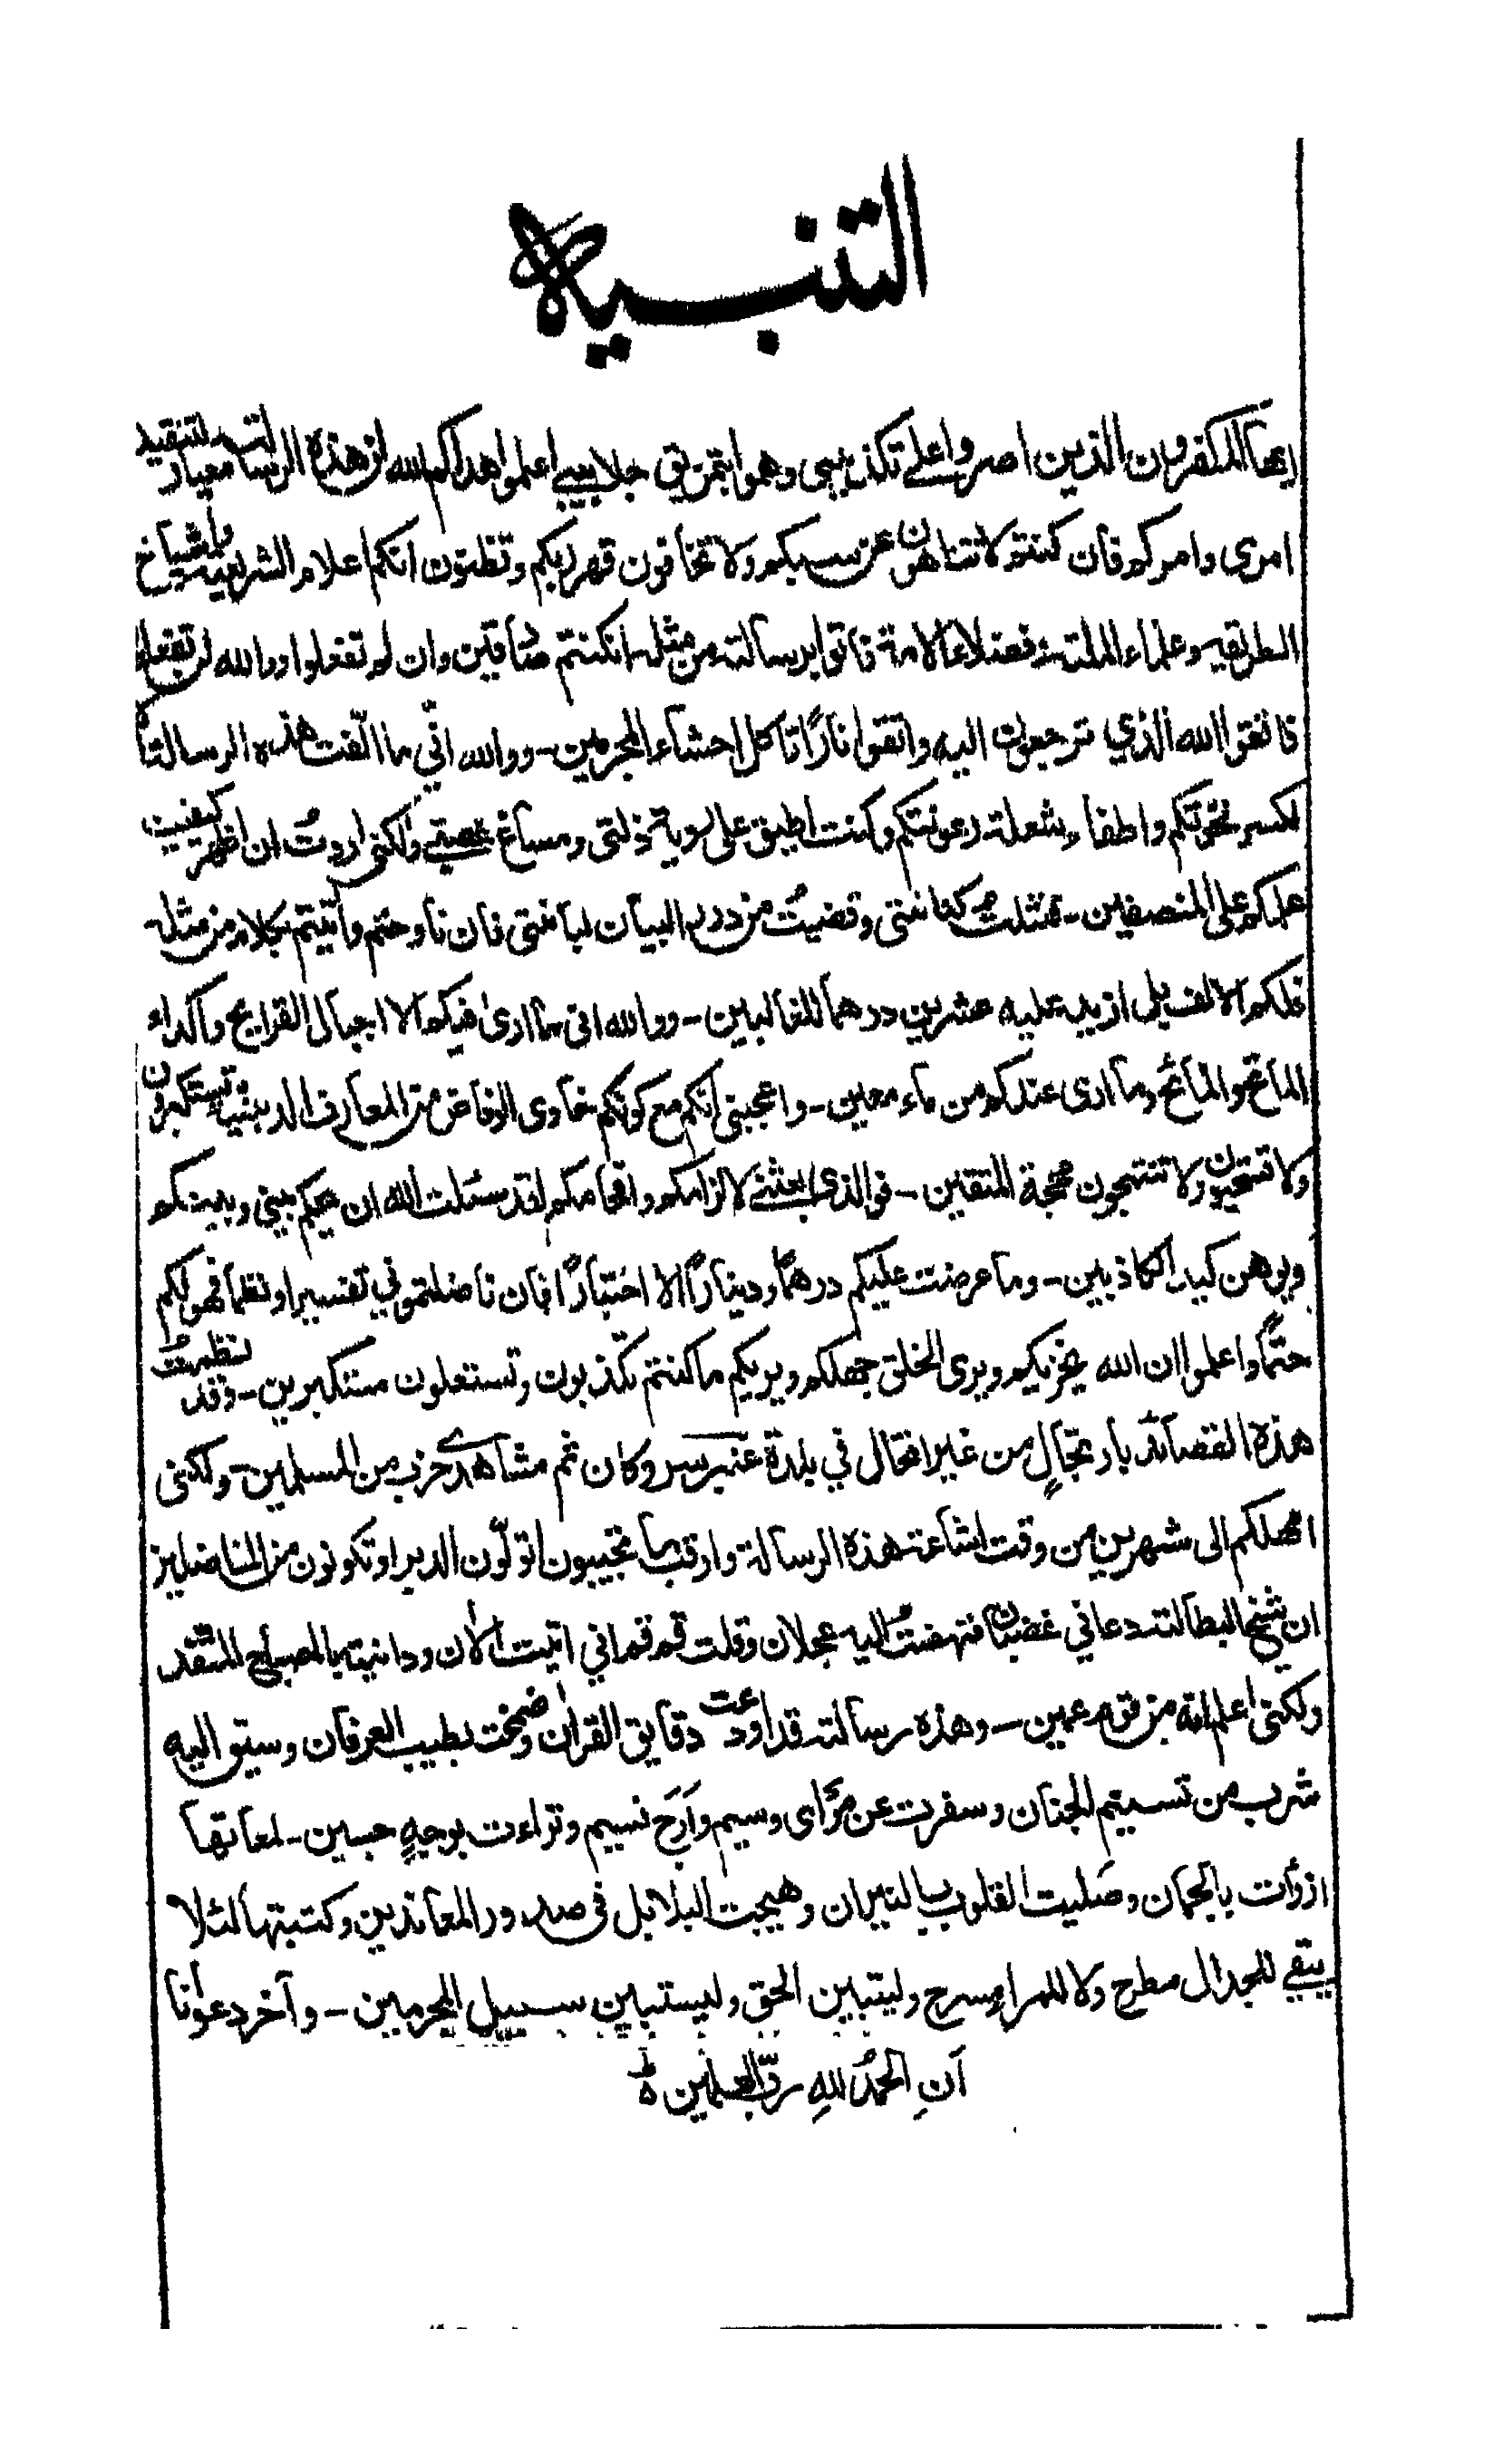 التنبيه
ايها المكفرون الذين اصروا على تكذيبي وهموا بتمزيق جلابيبي اعلموا هداكم الله ان هذه الرسالة معيار لتنقيد
امري وامركم فان كنتم لا تتناهون عن سبكم ولا تخافون قهر ربكم وتظنون انكم اعلام الشريعة واشياخ
الطريقة وعلماء الملة وفضلاء الامة فاتوا برسالة من مثلها ان كنتم صادقين وان لم تفعلوا ووالله لن تفعلوا
فاتقوا الله الذي ترجعون اليه واتقوا نارًا تاكل احشاء المجرمين - ووالله انّي ما الّفت هذه الرسالة الا
لكسر نخوتكم واطفاء شعلة رعونتكم وكنت اطيق على روية ذلتي ومساغ غصتي ولكني اردتُ ان اظهر كيفيت
علمكم على المنصفين - فنثلتُ كنانتي وقضيتُ من درر البيان لبانتي فان ناوحتم واتيتم بكلام من مثله
فلكم الالف بل ازيد عليه عشرين درهما للغالبين - ووالله اني ما ارىٰ فيكم الا اجبال القرايح واكداء
الماتح والمائح وما ارى عندكم من ماء معين - واعجبني انكم مع كونكم خاوي الوفاض من المعارف الدينية تستكبرون
ولا تستحيون ولا تنتهجون محجة المتقين - فوالذي بعثني لالزامكم وافحامكم لقد سئلت الله ان يحكم بيني وبينكم
ويوهن كيد الكاذبين - وما عرضت عليكم درهمًا ودينارًا الا اختبارًا فان ناضلتموني تفسيرا ونظما فهو لكم
حتمًا واعلموا ان الله يخزيكم ويرى الخلق جهلكم ويريكم ما كنتم تكذبون وتستعلون مستكبرين - وقد نظمتُ
هذه القصائد بارتجالٍ من غير انتحال في بلدة عنبرسر وكان ثم مشاهدي حزب من المسلمين - ولكني
امهلكم الى شهرين من وقت اشاعة هذه الرسالة وارقب ما تجيبون اتولّون الدبر او تكونون من المناضلين
ان شيخ البطالة دعاني غضبان فنهضتُ اليه عجلان وقلت قم قم اني اتيت الأن ودانيته بالمصباح المتقد
ولكني اعلم انه من قوم عمين - وهذه رسالة قد اودعت دقايق القرأن وضمخت بطيب العرفان وسيق اليه
شرب من تسنيم الجنان وسفرت عن مرأى وسيم وأرَج نسيم وتراءت بوجهٍ حسين - لمعانها
ازرأت بالجمان وصليت القلوب بالنيران وهيجت البلابل في صدور المعاندين وكتبتها لئلا
يبقى للجدال مطرح ولا للمراء مسرح وليتبين الحق وليستبين سبيل المجرمين - وآخر دعوٰنا
اَنِ الحمدُ للهِ ربّ العٰلمين